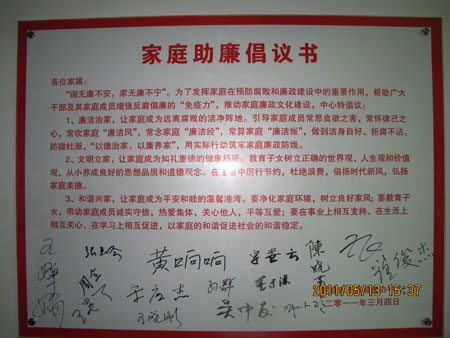 家庭助廉倡议书
各位家属：
“国无廉不安，家无廉不宁”。为了发挥家庭在预防腐败和廉政建设中的重要作用，帮助广大
干部及其家庭成员增强反腐倡廉的“免疫力”，推动家庭廉政文化建设，中心特倡议：
1、廉洁治家，让家庭成为远离腐败的洁净阵地。引导家庭成员常思贪欲之害、常怀律己之
心，常吹家庭“廉洁风”，常念家庭“廉洁经”，常算家庭“廉洁帐”，做到洁身自好、拒腐不沾、
防微杜渐，“以德治家、以廉养家”，用实际行动筑牢家庭廉政防线。
2、文明立家，让家庭成为知礼重德的健康场所。教育子女树立正确的世界观、人生观和价值
观，从小养成良好的思想品质和道德观念。在生活中厉行节约，杜绝浪费，倡扬时代新风，弘扬
家庭美德。
3、和谐兴家，让家庭成为平安和睦的温馨港湾。要净化家庭环境，树立良好家风；要教育子
女，带动家庭成员诚实守信，热爱集体，关心他人，平等互爱；要在事业上相互支持、在生活上
相互关心、在学习上相互促进，以家庭的和谐促进社会的和谐稳定。
黄响响
吴中友
二〇一一年三月四日
2011/05/13 15:37